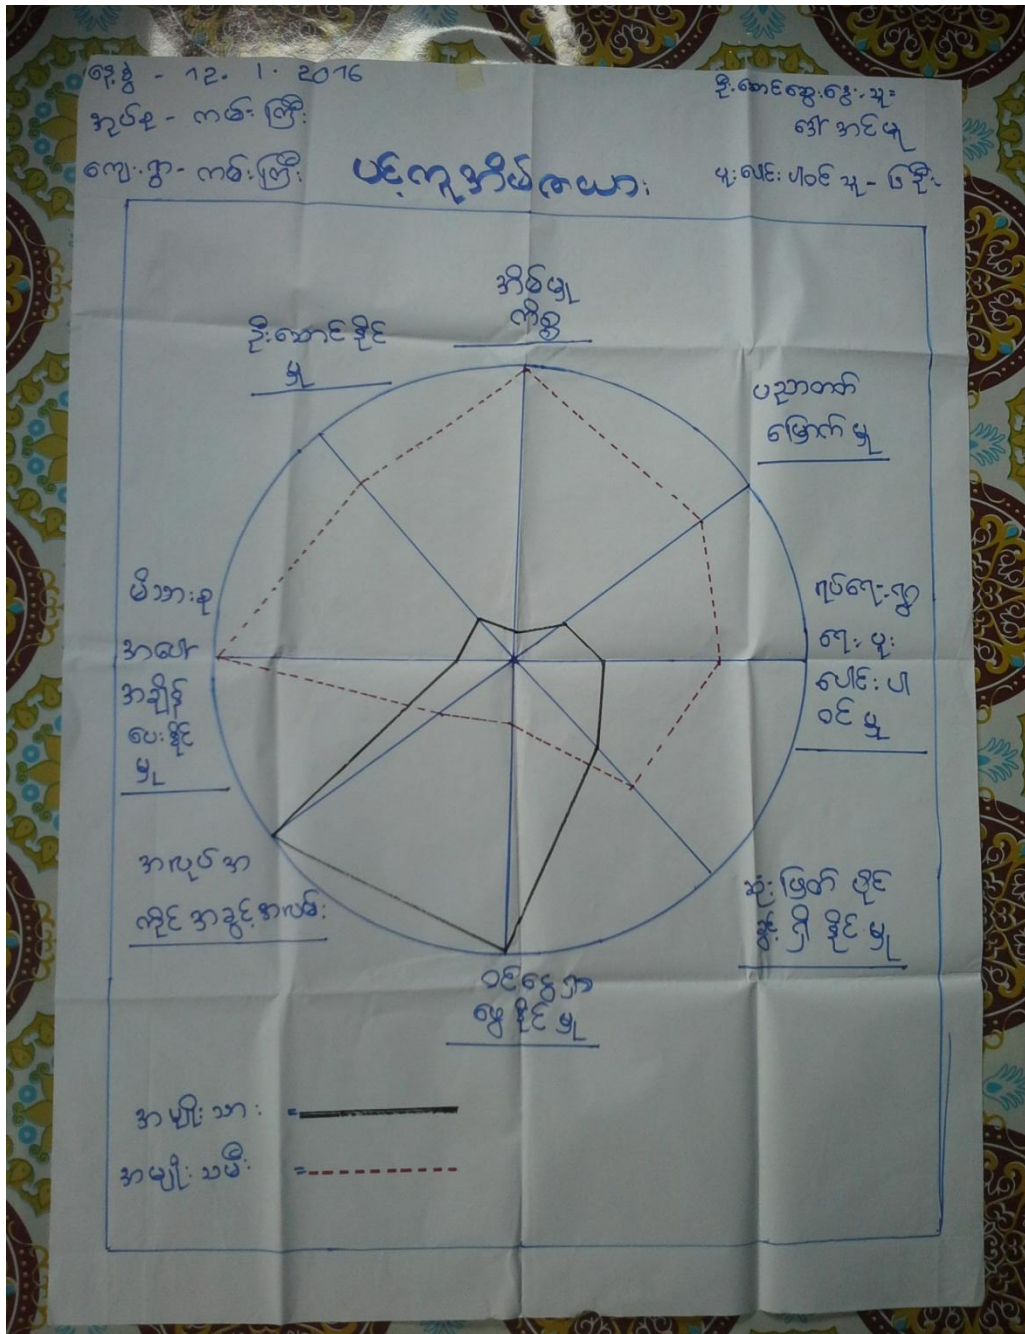 နေ့စွဲ - 12. 1. 2016
အုပ်စု - ကမ်းကြီး
ကျေးရွာ - ကမ်းကြီး
ဦးဆောင်ဆွေးနွေးသူ =
ဒေါ်အင်မူ
ပူးပေါင်းပါဝင်သူ - ၆ ဦး
ပင့်ကူအိမ်ဇယား
အိမ်မှု
ကိစ္စ
ဦးဆောင်နိုင်
မှု
ပညာတတ်
မြောက်မှု
မိသားစု
အပေါ်
အချိန်
ပေးနိုင်
မှု
ရပ်ရေးရွာ
ရေး ပူး
ပေါင်းပါ
ဝင်မှု
အလုပ်အ
ကိုင်အခွင့်အလမ်း
ဆုံးဖြတ်ပိုင်
ခွင့်ရှိနိုင်မှု
ဝင်ငွေရှာ
ဖွေနိုင်မှု
အမျိုးသား =
အမျိုးသမီး =